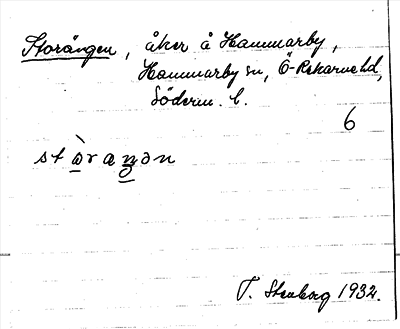 Storången, åker å Hammarby,
Hammarby sn, Ö-Rekarne hd,
Söderm. l.
6
T. Stenborg 1932.